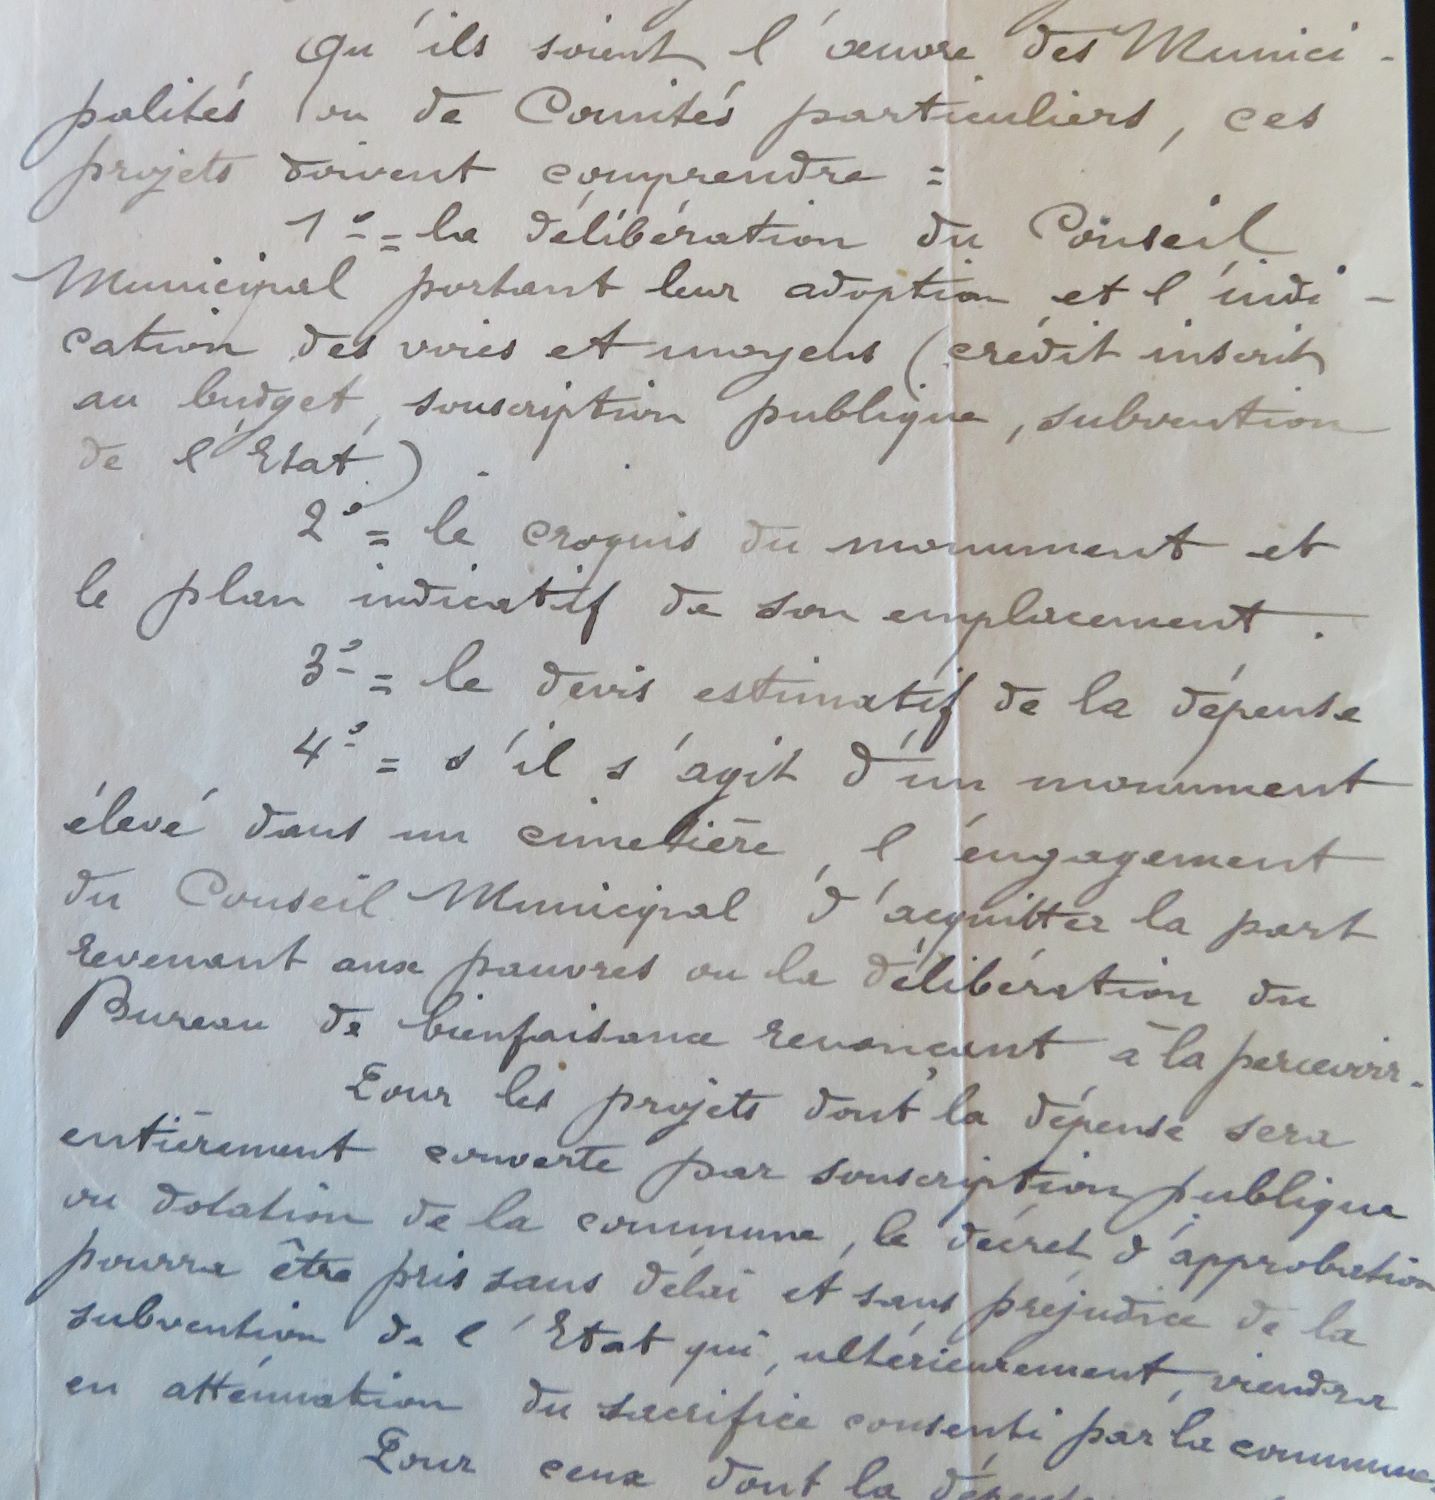 Qu'ils soient l'œuvre des Munici-
palités ou de Comités particuliers, ces
projets doivent comprendre =
1° = la délibération du Conseil
Municipal portant leur adoption et l'indi-
cation des voies et moyens (crédit inscrit
au budget, souscription publique, subvention
de l'Etat).
2° = le croquis du monument et
le plan indicatif de son emplacement.
3° = le devis estimatif de la dépense
4° = s'il s'agit d'un monument
élevé dans un cimetière, l'engagement
du Conseil Municipal d'acquitter la part
revenant aux pauvres ou la délibération du
Bureau de bienfaisance renonçant à la percevoir.
Pour les projets dont la dépense sera
entièrement couverte par souscription publique
ou dotation de la commune, le décret d'approbation
pourra être pris sans délai et sans préjudice de la
subvention de l'Etat qui, ultérieurement, viendra
en atténuation du sacrifice consenti par la commune.
Pour ceux dont la